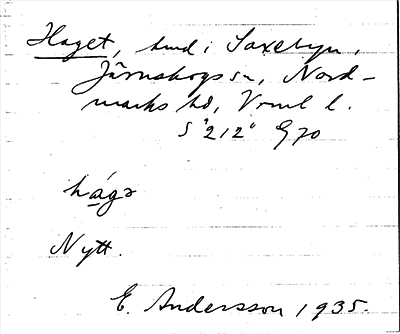 Haget, hmd i Saxebyn,
Järnskogs sn, Nord-
marks hd, Vrml l.
5 "212" G70
hágə
Nytt.
E. Andersson 1935.